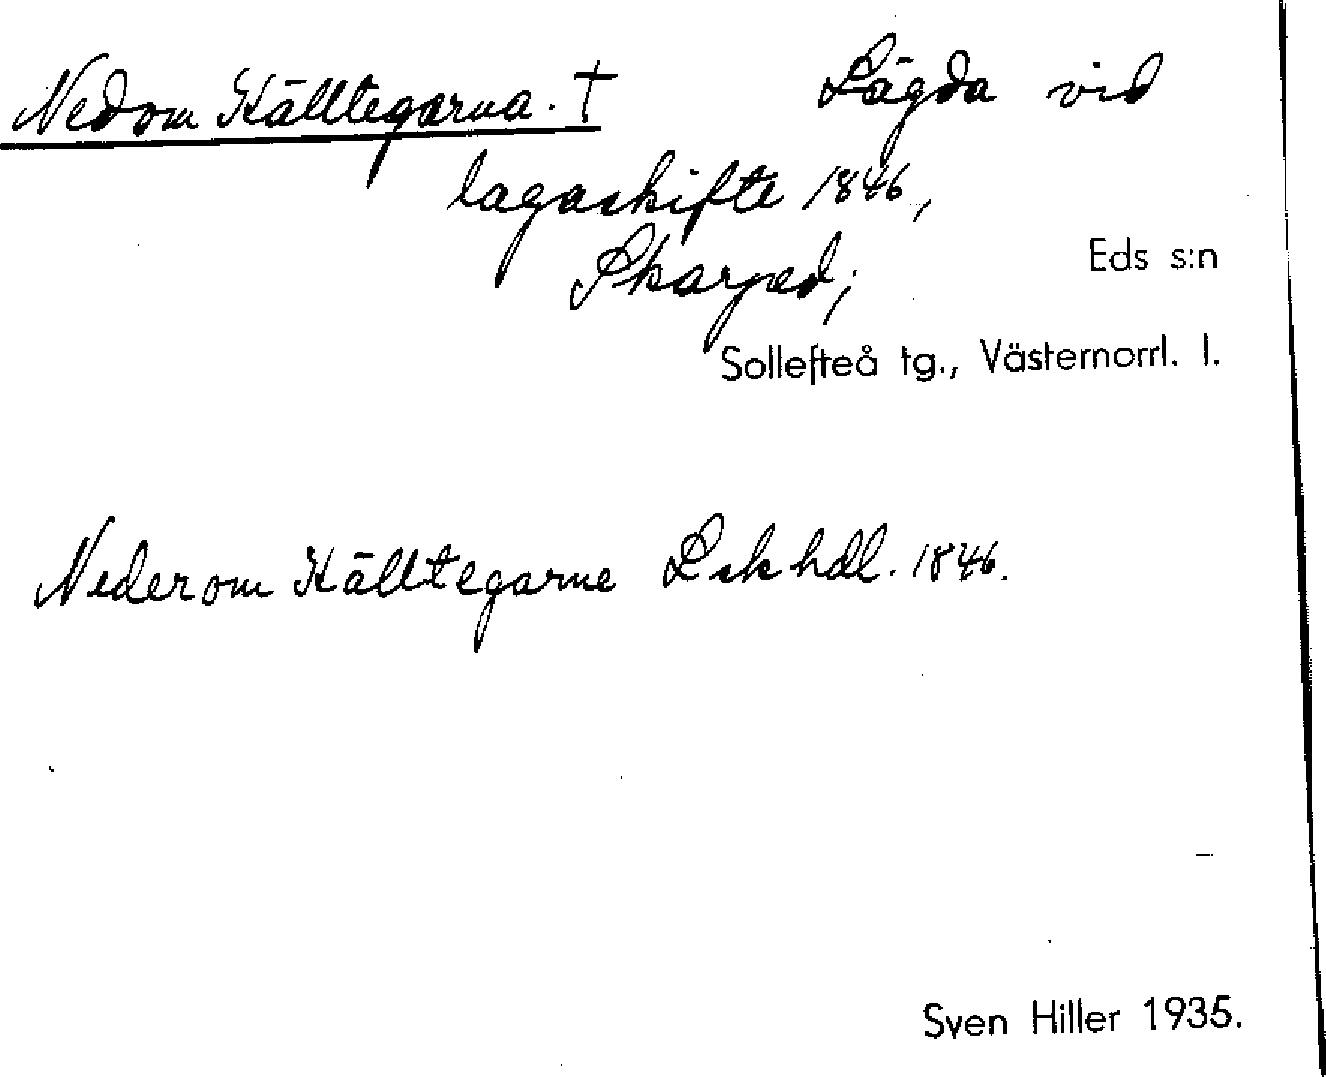 Nedom Källtegarna. † Lägda vid
lagaskifte 1846,
Skarped;
Eds s:n
Sollefteå tg., Västernorrl. l.
Nederom Källtegarne Lskhdl. 1846.
Sven Hiller 1935.